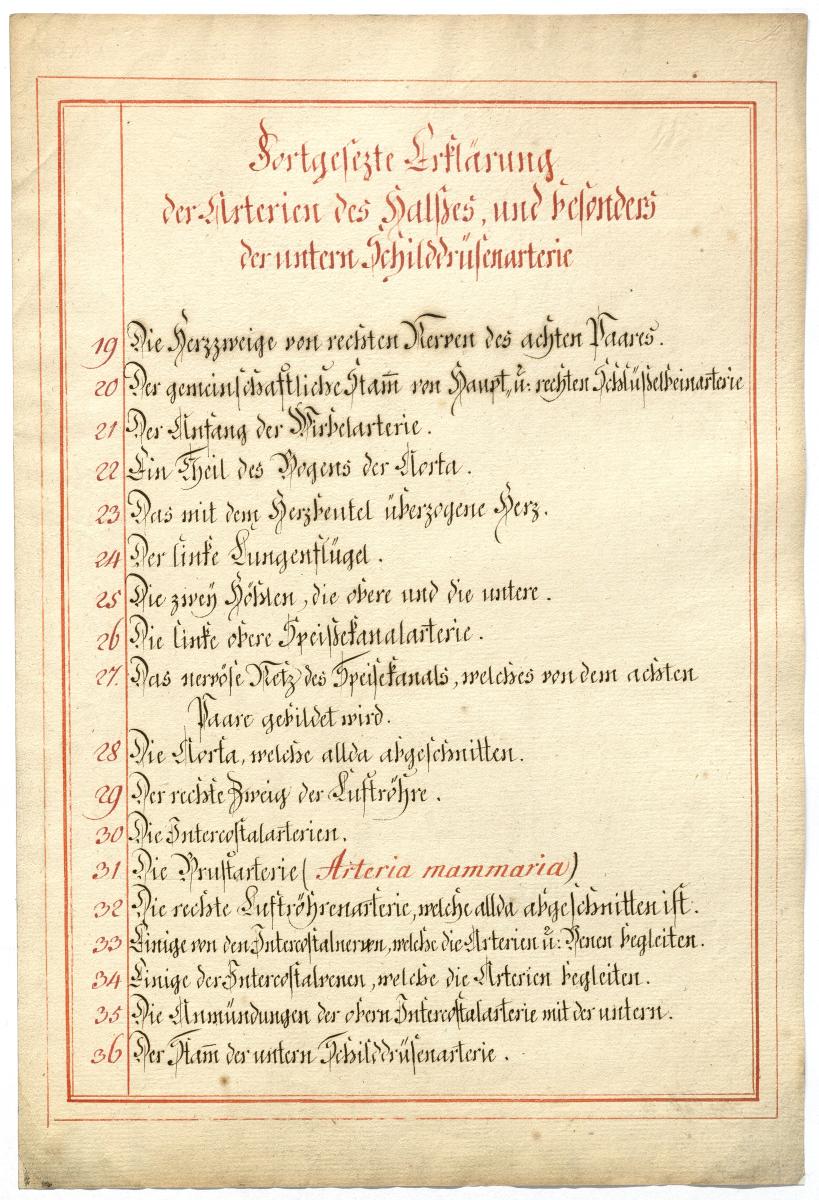 Fortgesezte Erklärung
der Arterien des Halses, und besonders
der untern Schilddrüsenarterie
19 Die Herzzweige von rechten Nerven des achten Paares.
20 Der gemeinschaftliche Stam̄ von Haupt„ u: rechten Schlüsselbeinarterie
21 Der Anfang der Wirbelarterie.
22 Ein Theil des Bogens der Aorta.
23 Das mit dem Herzbeutel überzogene Herz.
24 Der linke Lungenflügel.
25 Die zweÿ Höhlen, die obere und die untere.
26 Die linke obere Speisekanalarterie.
27. Das nervöse Netz des Speisekanals, welches von dem achten
Paare gebildet wird.
28 Die Aorta, welche allda abgeschnitten.
29 Der rechte Zweig der Luftröhre.
30 Die Intercostalarterien.
31 Die Brustarterie (Arteria mammaria)
32 Die rechte Luftröhrenarterie, welche allda abgeschnitten ist.
33 Einige von den Intercostalnerven, welche die Arterien u: Venen begleiten.
34 Einige der Intercostalvenen, welche die Arterien begleiten.
35 Die Anmündungen der obern Intercostalarterie mit der untern.
36 Der Stam̄ der untern Schilddrüsenarterie.